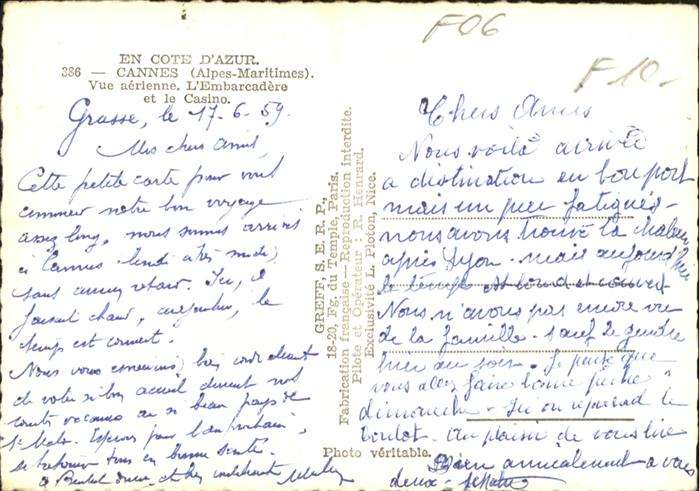 F06
F10.-
EN COTE D'AZUR.
386 — CANNES (Alpes-Maritimes).
Vue aérienne. L'Embarcadère
et le Casino.
Grasse, le 17-6-59.
Mes chers amis,
Cette petite carte pour vous
annoncer notre bon voyage
assez long, nous sommes arrivés
à Cannes lundi à
sans aucun retard. Ici, il
faisait chaud, aujourd'hui, le
temps est couvert.
Nous vous remercions bien cordialement
de votre si bon accueil durant nos
courtes vacances au si beau pays de
St Malo. Espérons pour l'an prochain,
se retrouver tous en bonne santé.
A Bientôt
GREFF, S. E. R. P.,
18-20, Fg. du Temple, Paris.
Fabrication française — Reproduction interdite.
Pilote et Opérateur : R. Henrard.
Exclusivité L. Ploton, Nice.
Photo véritable.
Chers Amis
Nous voilà arrivé
a destination en bon port
mais un peu fatigués -
nous avons trouvé la chaleur
après Lyon - mais aujourd'hui
le temps est lourd et couvert
Nous n'avons pas encore vu
de la famille - sauf le gendre
hier au soir. Je pense que
vous allez faire bonne pêche
dimanche - Ici on reprend le
boulot. Au plaisir de vous lire
Bien amicalement a vous
deux -